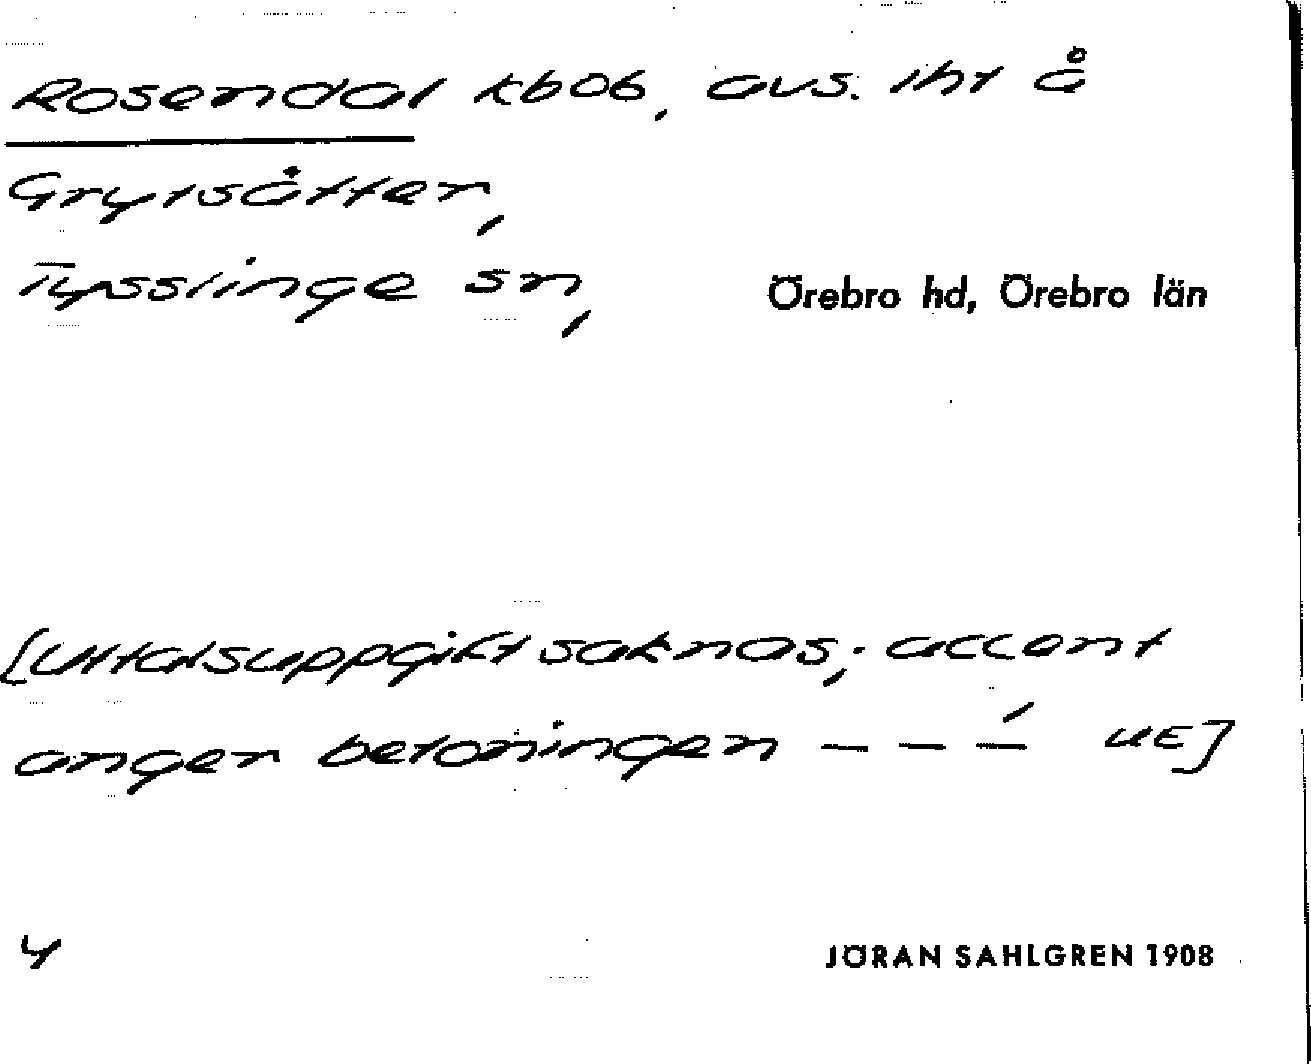 Rosendal kbob, avs. iht å
Grytsåtter,
Tysslinge sn, Örebro hd, Örebro län
[Uttalsuppgift saknas; accent
anger betoningen – – –́ UE]
4
JÖRAN SAHLGREN 1908